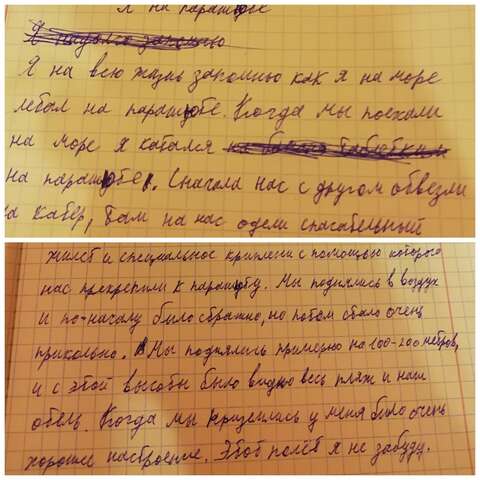 Я на парашюте
Я надолго запомню
Я на всю жизнь запомню как я на море
летал на парашюте. Когда мы поехали
на море я катался на
на парашюте. Сначала нас с другом отвезли
на катер, там на нас одели спасательный
жилет и специальное крипление с помощью которого
нас прекрепили к парашюту. Мы поднялись в воздух
и по-началу было страшно, но потом стало очень
прикольно. Мы поднялись примерно на 100-200 метров,
и с этой высоты было видно весь пляж и наш
отель. Когда мы призимлись у меня было очень
хорошее настроение. Этот полёт я не забуду.